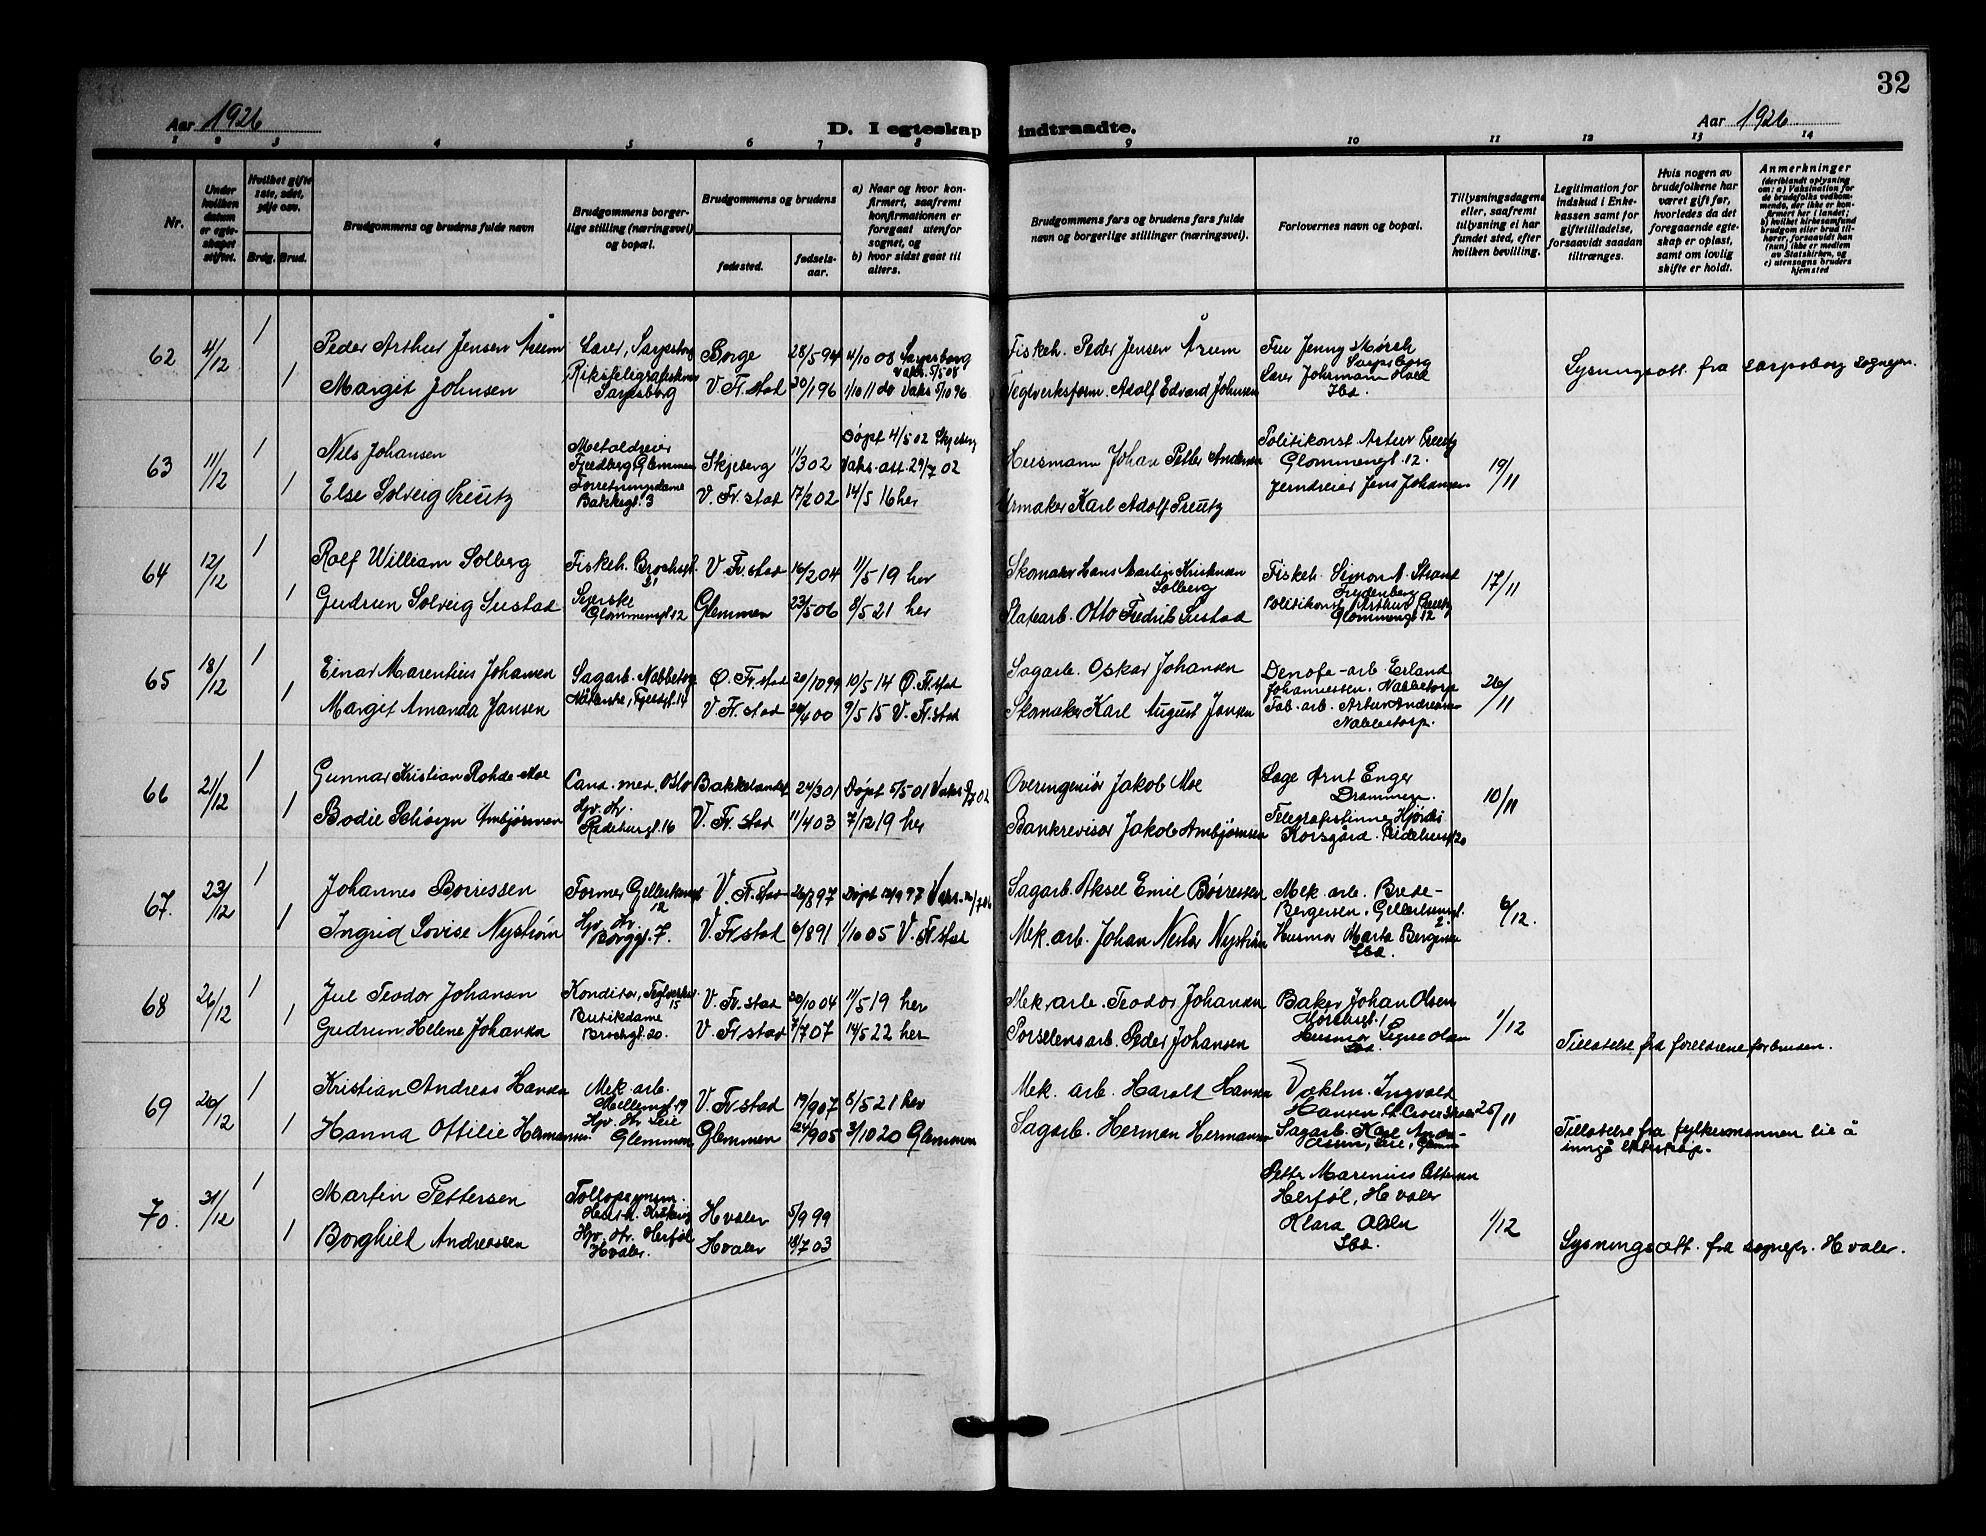 32
Aar 1926
D. I egteskap indtraadte.
Aar 1926
1 2 3 4 5 6 7 8 9 10 11 12 13 14
Nr.
Under hvilken datum er egteskapet stiftet.
Hvilket gifte 1ste, 2det, 3dje osv.
Brdg. Brud.
Brudgommens og brudens fulde navn
Brudgommens borgerlige stilling (næringsvei) og bopæl.
Brudgommens og brudens
fødested.
fødselsaar.
a) Naar og hvor konfirmert, saafremt konfirmationen er foregaat utenfor sognet, og
b) hvor sidst gaat til alters.
Brudgommens fars og brudens fars fulde navn og borgerlige stillinger (næringsvei).
Forlovernes navn og bopæl.
Tillysningsdagene eller, saafremt tillysning ei har fundet sted, efter hvilken bevilling.
Legitimation for indskud i Enkekassen samt for giftetilladelse, forsaavidt saadan tiltrænges.
Hvis nogen av brudefolkene har været gift før, hvorledes da det foregaaende egteskap er opløst, samt om lovlig skifte er holdt.
Anmerkninger
(deriblandt oplysning om: a) Vaksination for de brudefolks vedkommende, der ikke er konfirmert her i landet; b) hvilket kirkesamfund brudgom eller brud tilhører, forsaavidt han (hun) ikke er medlem av Statskirken, og c) utensogns bruders hjemsted
62 4/12 1 Peder Arthur Jensen Årum Lærer, Sarpsborg Borge 28/5 94 4/10 08 Sarpsborg Vaks. 5/5 08 Fiskeh. Peder Jensen Årum Fru Jenny Mørch Sarpsborg
1 Margit Johnsen Rikstelegrafistinne Sarpsborg V. Fr.stad 20/1 96 1/10 11 do Vaks 5/10 96 Teglverksform. Adolf Edvard Johnsen Lærer Johrmann Hoel Ibd.
Lysningsatt. fra Sarpsborg sognepr.
63 11/12 1 Nils Johansen Metaldreier Fjeldberg Glemmen Skjeberg 11/3 02 Døpt 4/5 02 Skjeberg Vaks. att. 29/7 02 Husmann Johan Petter Andersen Politikonst Artur Creutz Glommengt. 12. 19/11
1 Else Solveig Creutz Forretningsdame Bakkegt. 3 V. Fr. stad 17/2 02 14/5 16 her Urmaker Karl Adolf Creutz Jerndreier Jens Johansen
64 12/12 1 Rolf William Solberg Fiskeh. Brochsgt. 31 V. Fr. stad 16/2 04 11/5 19 her Skomaker Hans Martin Kristensen Solberg Fiskeh. Simon A. Strand Frydenberg 17/11
1 Gudrun Solveig Sustad Syerske Glommengt. 12 Glemmen 23/5 06 8/5 21 her Platearb. Otto Fredrik Sustad Politikonst Arthur Creutz Glommengt 12
65 18/12 1 Einar Marentius Johansen Sagarb. Nabbetorp Ø. Fr. stad 20/10 99 10/5 14 Ø. Fr. stad Sagarb. Oskar Johansen Denofa-arb Erland Johannessen, Nabbetorp 26/11
1 Margit Amanda Jansen V. Fr. stad 4 00 9/5 15 V. Fr. stad Skomaker Karl August Jansen Fab. arb. Artur Andresen Nabbetorp.
66 21/12 1 Gunnar Kristian Rohde-Moe Cand. med. Oslo Bakkelandet 24/3 01 Døpt 5/5 01 Vaks 02 Overingeniør Jakob Moe Læge Arnt Enger Drammen. 10/11
1 Bodil Schøyen Ambjørnsen Hpv. Hr. Ridehusgt. 16 V. Fr. stad 11/4 03 7/12 19 her Bankrevisor Jakob Ambjørnsen Telegrafistinne Hjørdis Korsgård. Ridehusgt 20
67. 23/12 1 Johannes Børressen Former Gellertsensgt 12 V. Fr. stad 26/8 97 Døpt 12/9 97 Vaks. Sagarb. Aksel Emil Børressen Mek. arb. Brede Bergersen, Gellertsensgt. 2 6/12.
1 Ingrid Lovise Nystrøm Hpv. Hr. Borggt. 7. V. Fr. stad 6/8 91 1/10 05 V. Fr stad Mek. arb. Johan Nestor Nystrøm Husmor Marta Bergersen Ibd.
68 26/12 1 Jul Teodor Johansen Konditor, Teglverksgt. 15 V. Fr. stad 20/10 04 11/5 19 her Mek. arb. Teodor Johansen Baker Johan Olsen 1 1/12
1 Gudrun Helene Johansen Butikdame Brochsgt. 20. V. Fr stad 7/7 07 14/5 22 her Porselensarb. Peder Johansen Husmor Signe Olsen Ibd.
Tillatelse fra foreldrene for bruden.
69 26/12 1 Kristian Andreas Hansen Mek. arb. Mellemgt. 19 V. Fr stad 19/9 07 5/5 21 her Mek. arb. Harald Hansen Vaktm. Ingvald Hansen 25/11
1 Hanna Ottilie Hermansen Hpv. Hr Leie Glemmen Glemmen 24/9 05 3/10 20 Glemmen Sagarb. Herman Hermansen Sagarb. Karl
Tillatelse fra fylkesmannen til å inngå ekteskap.
70. 31/12 1 Martin Pettersen Hvaler 5/9 99 Petter Marenius Pettersen Herføl, Hvaler 1/12
1 Borghild Andreassen Hpv. Hr. Herføl Hvaler. Hvaler 18/7 03 Klara Olsen Ibd.
Lysningsatt. fra sognepr. Hvaler.